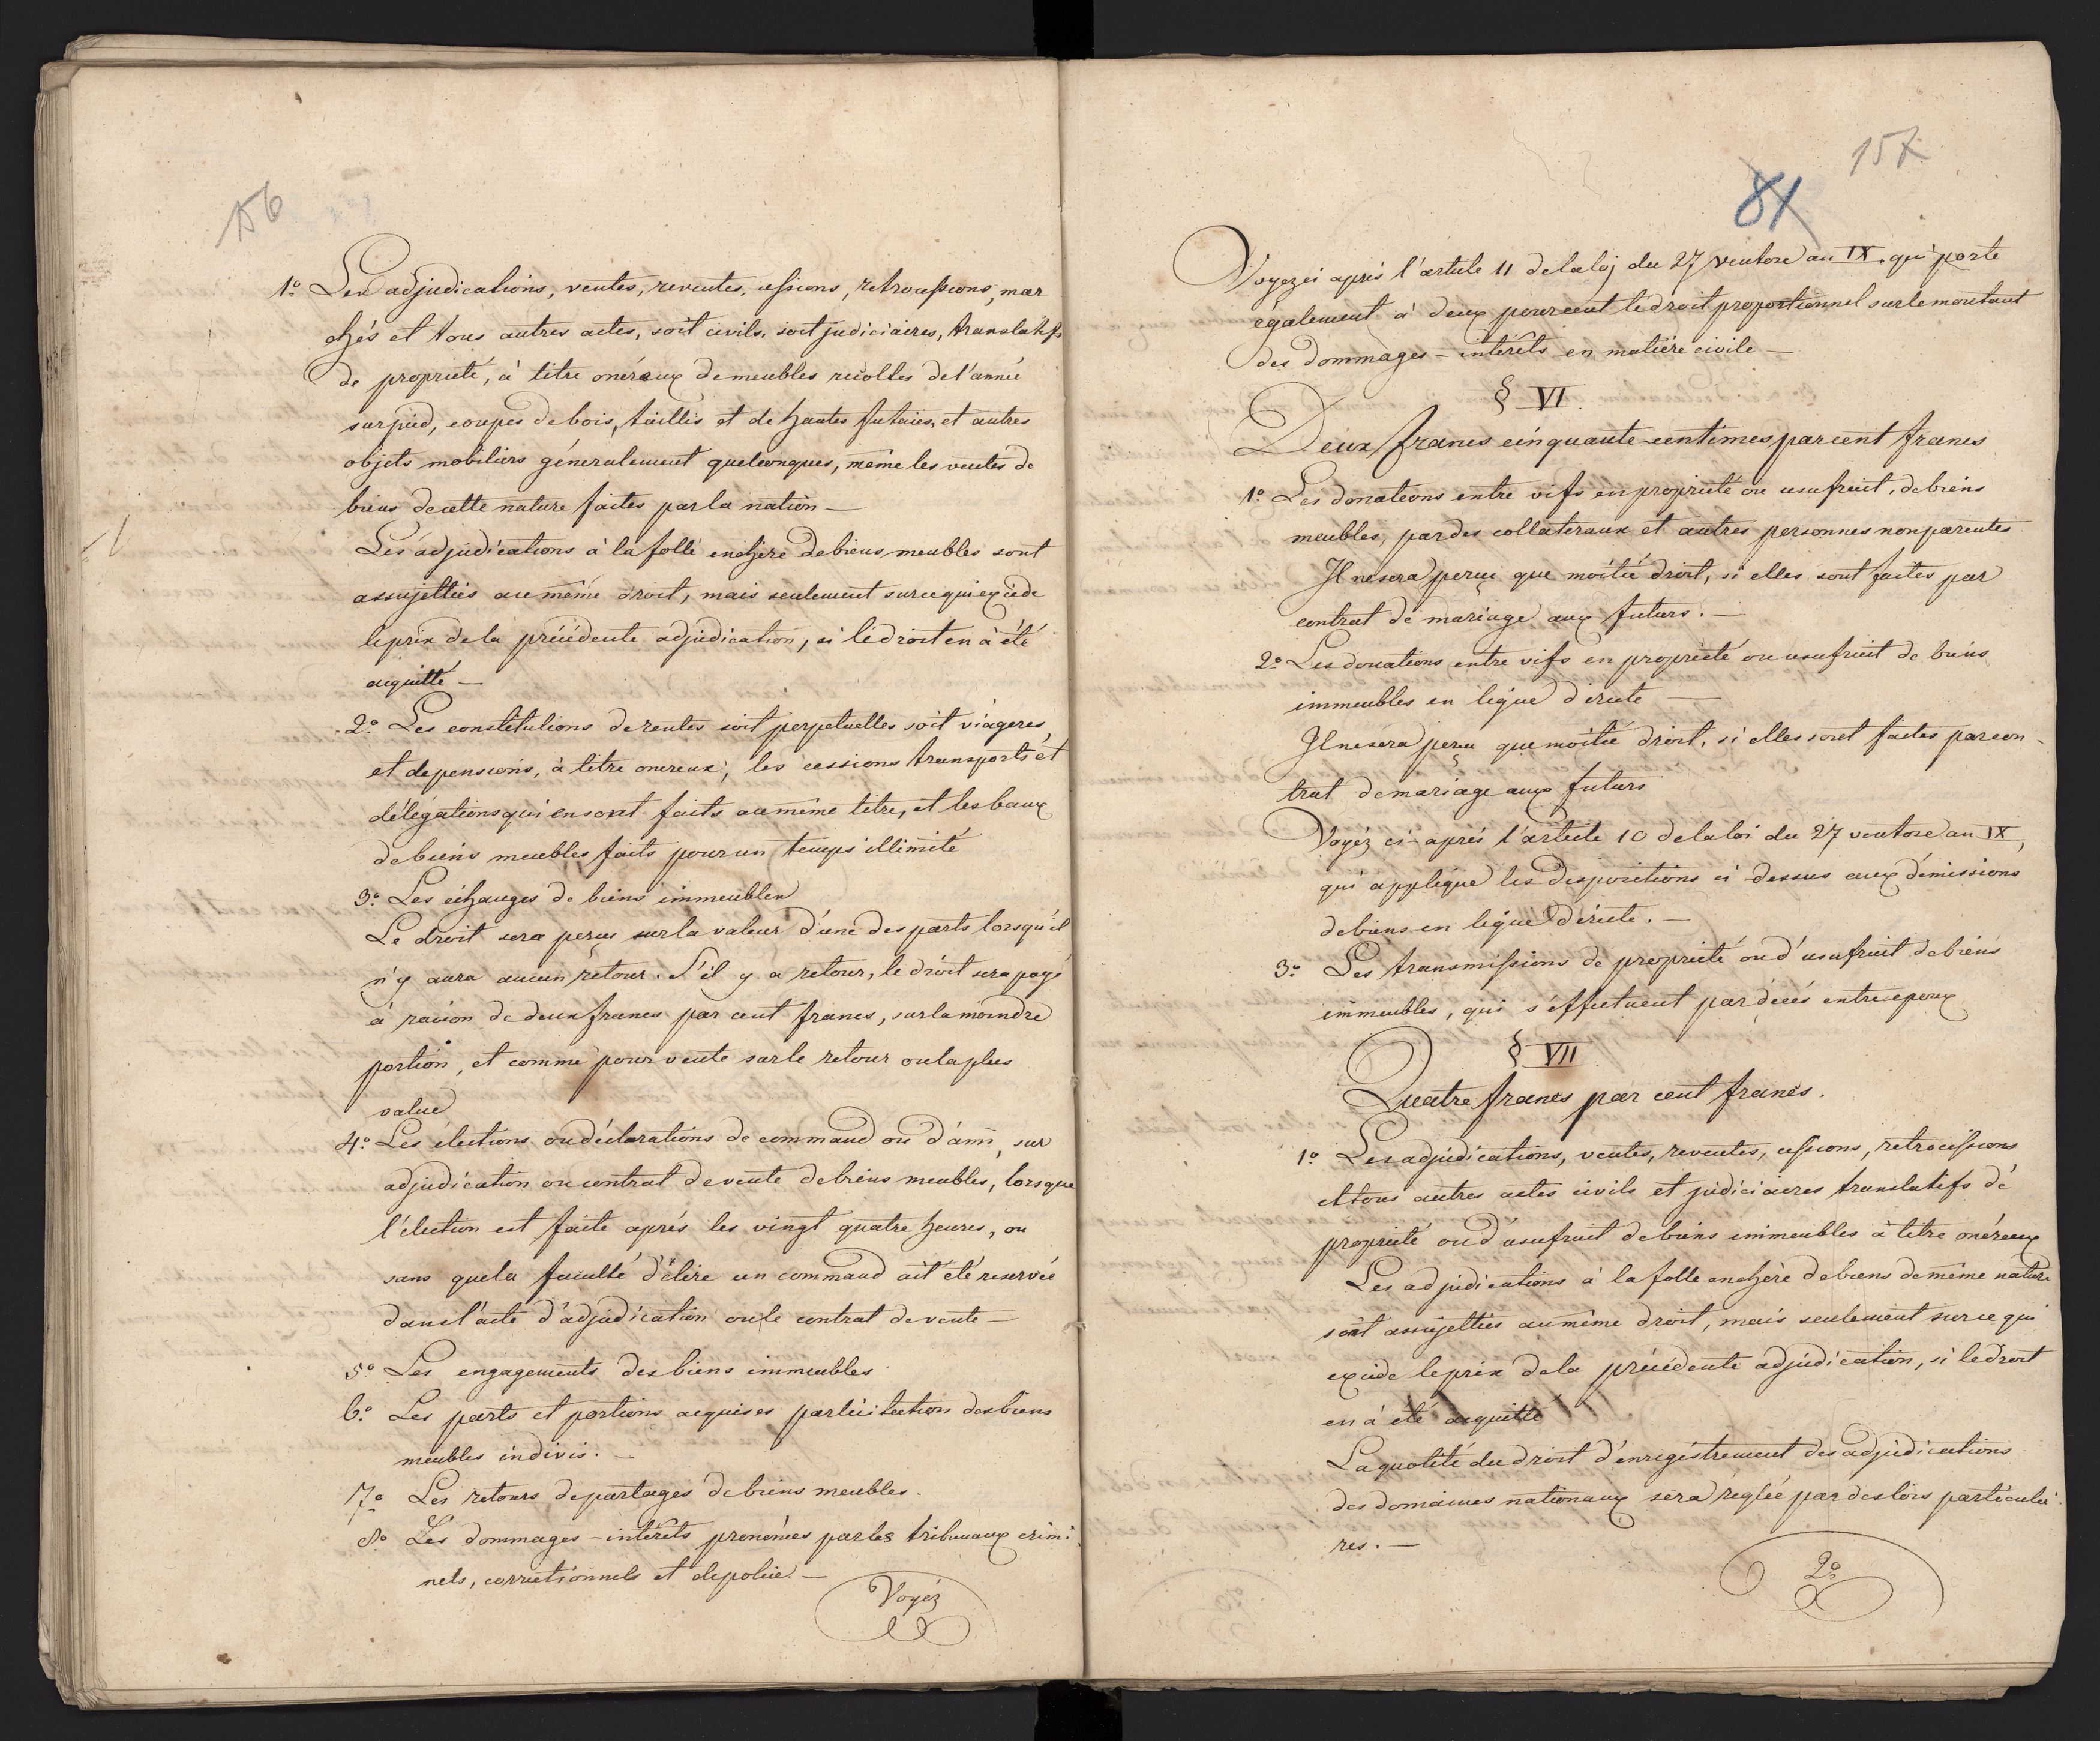 156
1º Les adjudications, ventes, reventes, cessions, retrocessions, mar
chés et tous autres actes, soit civils, soit judiciaires, translatifs
de propriété, à titre onéreux de meubles récoltes de l'année
sur pied, coupes de bois, taillis et de hautes futaies, et autres
objets mobiliers géneralement quelconques, même les ventes de
biens de cette nature faites par la nation —
Les adjudications à la folle enchère de biens meubles sont
assujetties au même droit, mais seulement sur ce qui excède
le prix de la précédente adjudication, si le droit en à été
acquitté —
2º Les constitutions de rentes soit perpetuelles soit viageres
et de pensions, à titre onereux, les cessions transports et
délégations qui en sont faits au même titre, et les baux
de biens meubles faits pour un temps illimité
3º Les échanges de biens immeubles
Le droit sera perçu sur la valeur d'une des parts lorsqu'il
n'y aura aucun retour. S'il y a retour, le droit sera payé
à raison de deux francs par cent francs, sur la moindre
portion, et comme pour vente sur le retour ou la plus
value
4º Les élections ou déclarations de command ou d'ami, sur
adjudication ou contrat de vente de biens meubles, lorsque
l'élection est faite aprés les vingt quatre heures, ou
sans que la faculté d'élire un command ait été reservée
dans l'acte d'adjudication ou le contrat de vente —
5º Les engagements des biens immeubles
6º Les parts et portions acquises par licitation des biens
meubles indivis. —
7º Les retours de partages de biens meubles.
8º Les dommages - intérêts prononcés par les tribunaux crimi
nels, correctionnels et de police. —
Voyéz
157
81
Voyez ci aprés l'article 11 de la loj du 27 ventose an IX, qui porte
également à deux pour cent le droit proportionnel sur le montant
des dommages - intérêts en matière civile —
§ VI.
Deux francs cinquante centimes par cent francs
1º Les donations entre vifs en propriété ou usufruit, de biens
meubles, par des collateraux et autres personnes non parentes
Il ne sera perçu que moitié droit, si elles sont faites par
contrat de mariage aux futurs. —
2º Les donations entre vifs en propriété ou usufruit de biens
immeubles en ligne directe —
Il ne sera perçu que moitié droit, si elles sont faites par con-
trat de mariage aux futurs
Voyéz ci-aprés l'article 10 de la loi du 27 ventose an IX,
qui applique les dispositions ci-dessus aux démissions
de biens en ligne directe. —
3º Les transmissions de propriété ou d'usufruit de biens
immeubles, qui s'effectuent par décés entre epoux
§ VII
Quatre francs par cent francs.
1º Les adjudications, ventes, reventes, cessions, retrocessions
et tous autres actes civils et judiciaires translatifs de
propriété ou d'usufruit de biens immeubles à titre onéreux
Les adjudications à la folle enchère de biens de même nature
sont assujetties au même droit, mais seulement sur ce qui
excède le prix de la précédente adjudication, si le droit
en à été acquitté
La quotité du droit d'enregistrement des adjudications
des domaines nationaux sera réglée par des lois particuliè
res. —
2º